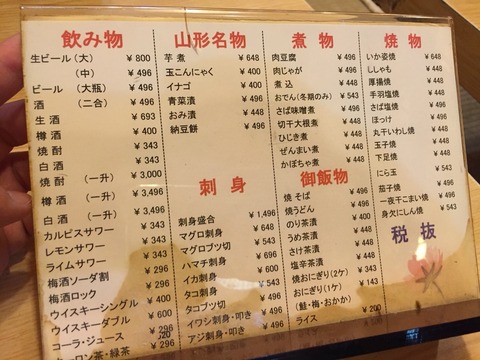 飲み物
生ビール(大) ¥800
(中) ¥496
ビール (大瓶) ¥496
酒 (二合) ¥496
生酒 ¥693
樽酒 ¥400
焼酎 ¥343
白酒 ¥343
焼酎 (一升) ¥3,000
樽酒 (一升) ¥3,496
白酒 (一升) ¥3,496
カルピスサワー ¥343
レモンサワー ¥343
ライムサワー ¥343
梅酒ソーダ割 ¥296
梅酒ロック ¥296
ウイスキーシングル ¥400
ウイスキーダブル ¥600
コーラ・ジュース ¥296
ウーロン茶・緑茶 ¥296
山形名物
芋煮 ¥648
玉こんにゃく ¥400
イナゴ ¥400
青菜漬 ¥496
おみ漬 ¥448
納豆餅 ¥496
刺身
刺身盛合 ¥1,496
マグロ刺身 ¥648
マグロブツ切 ¥543
ハマチ刺身 ¥600
イカ刺身 ¥543
タコ刺身 ¥543
タコブツ切
イワシ刺身・叩き
アジ刺身・叩き
煮物
肉豆腐 ¥496
肉じゃが ¥496
煮込 ¥448
おでん(冬期のみ) ¥543
さば味噌煮 ¥496
切干大根煮 ¥448
ひじき煮 ¥448
ぜんまい煮 ¥448
かぼちゃ煮 ¥448
御飯物
焼そば ¥496
焼うどん ¥496
のり茶漬 ¥448
うめ茶漬 ¥448
さけ茶漬 ¥448
塩辛茶漬 ¥448
焼おにぎり(2ケ) ¥343
おにぎり(1ケ) ¥143
(鮭・梅・おかか)
ライス ¥200
焼物
いか姿焼 ¥648
ししゃも ¥448
厚揚焼 ¥448
手羽塩焼 ¥448
さば塩焼 ¥496
ほっけ ¥496
丸干いわし焼 ¥448
玉子焼 ¥448
下足焼 ¥448
にら玉
茄子焼
一夜干こまい焼 ¥496
身欠にしん焼 ¥543
税抜